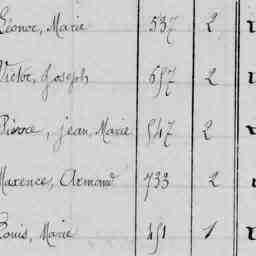 Léonor, Marie 537 2
Victor, Joseph 657 2
Pierre, jean, Marie 547 2
Maxence, Armand 733 2
Louis, Marie 451 1